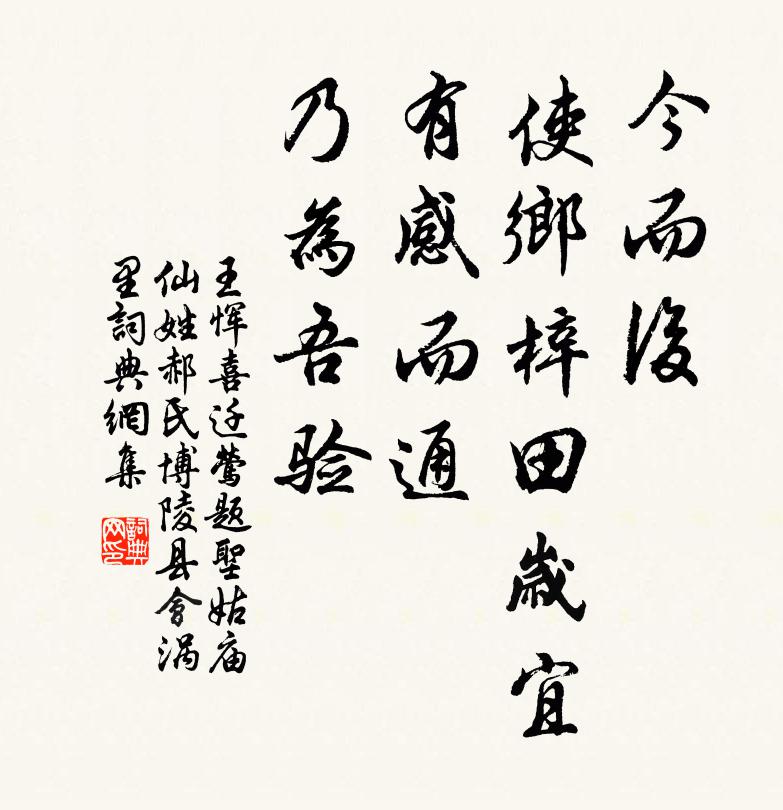 今而後
使鄉梓田歲宜
有感而通
乃為吾验
王恽喜迁鶯題聖姑庙
仙姓郝氏博陵县會涡
里詞典網集
詞典网印